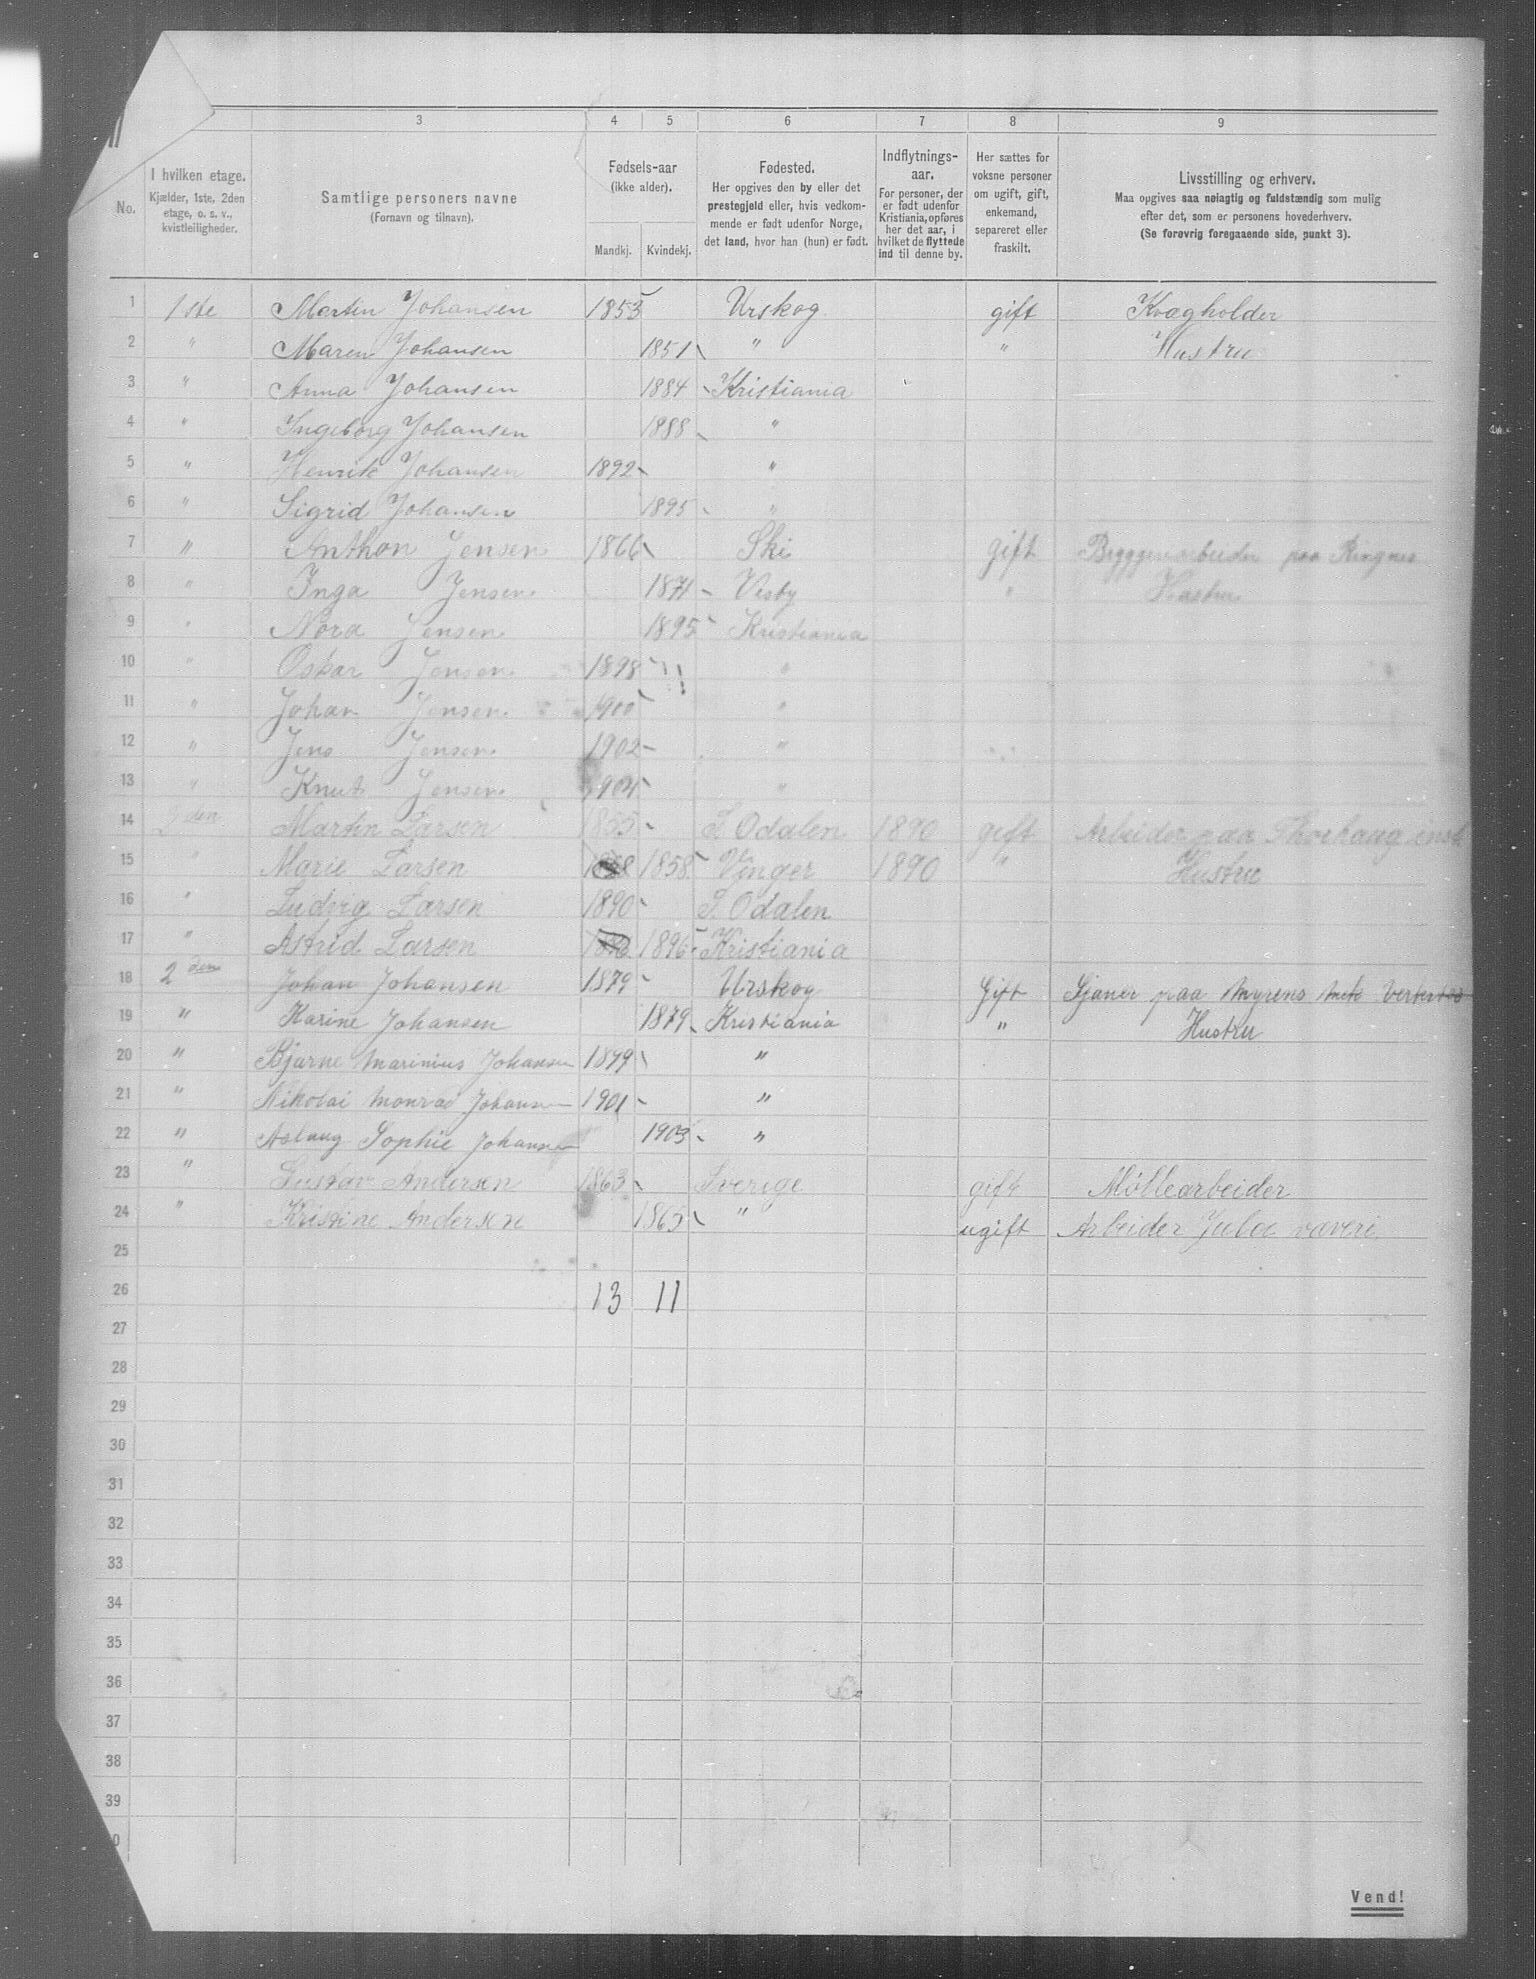 3 4 5 6 7 8 9
No.
I hvilken etage.
Kjælder, 1ste, 2den etage, o. s. v., kvistleiligheder.
Samtlige personers navne
(Fornavn og tilnavn).
Fødsels-aar
(ikke alder).
Mandkj. Kvindekj.
Fødested.
Her opgives den by eller det prestegjeld eller, hvis vedkommende er født udenfor Norge, det land, hvor han (hun) er født.
Indflytnings-aar.
For personer, der er født udenfor Kristiania, opføres her det aar, i hvilket de flyttede ind til denne by.
Her sættes for voksne personer om ugift, gift, enkemand, separeret eller fraskilt.
Livsstilling og erhverv.
Maa opgives saa nøiagtig og fuldstændig som mulig efter det, som er personens hovederhverv.
(Se forøvrig foregaaende side, punkt 3).
1 1ste Martin Johansen 1853 Urskog gift Kvægholder
2 " Maren Johansen 1851 " " Hustru
3 " Anna Johansen 1884 Kristiania
4 " Ingeborg Johansen 1888 "
5 " Henrik Johansen 1892 "
6 " Sigrid Johansen 1895 "
7 " Anthon Jensen 1866 Ski gift Bryggeriarbeider paa Ringnes
8 " Inga Jensen 1871 Visby " Hustru
9 " Nora Jensen 1895 Kristiania
10 " Oskar Jensen 1898 "
11 " Johan Jensen 1900 "
12 " Jens Jensen 1902 "
13 " Knut Jensen 1904 "
14 2den Martin Larsen 1855 S. Odalen 1890 gift Arbeider paa Thorhaug inst.
15 " Marie Larsen 1858 Vinger 1890 " Hustru
16 " Ludvig Larsen 1890 S. Odalen
17 " Astrid Larsen 1896 Kristiania
18 2den Johan Johansen 1879 Urskog Gift Sjauer paa Myrens Mek Verksted
19 " Karine Johansen 1879 Kristiania " Hustru
20 " Bjarne Marinius Johansen 1899 "
21 " Nikolai Monrad Johansen 1901 "
22 " Aslaug Sophie Johansen 1903 "
23 " Gustav Andersen 1863 Sverige gift Møllearbeider
24 " Kristine Andersen 1865 " ugift Arbeider Jula væveri
25
26 13 11
27
28
29
30
31
32
33
34
35
36
37
38
39
Vend!